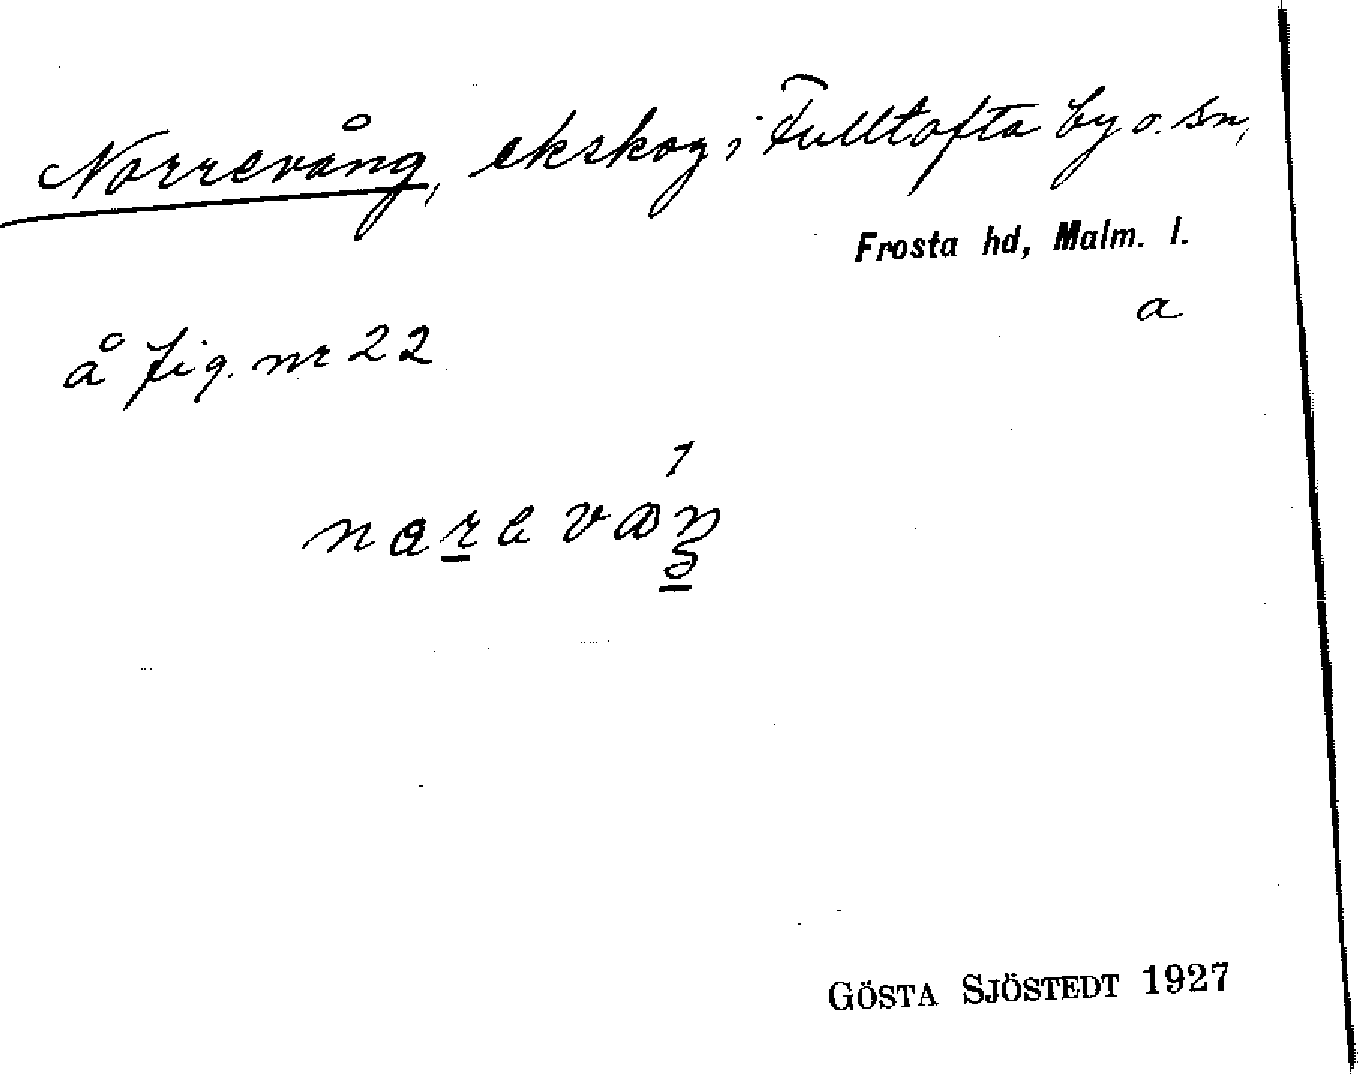 Norrevång, ekskog, i Fulltofta by o. sn,
Frosta hd, Malm. l.
a
å fig. nr 22
1
GÖSTA SJÖSTEDT 1927